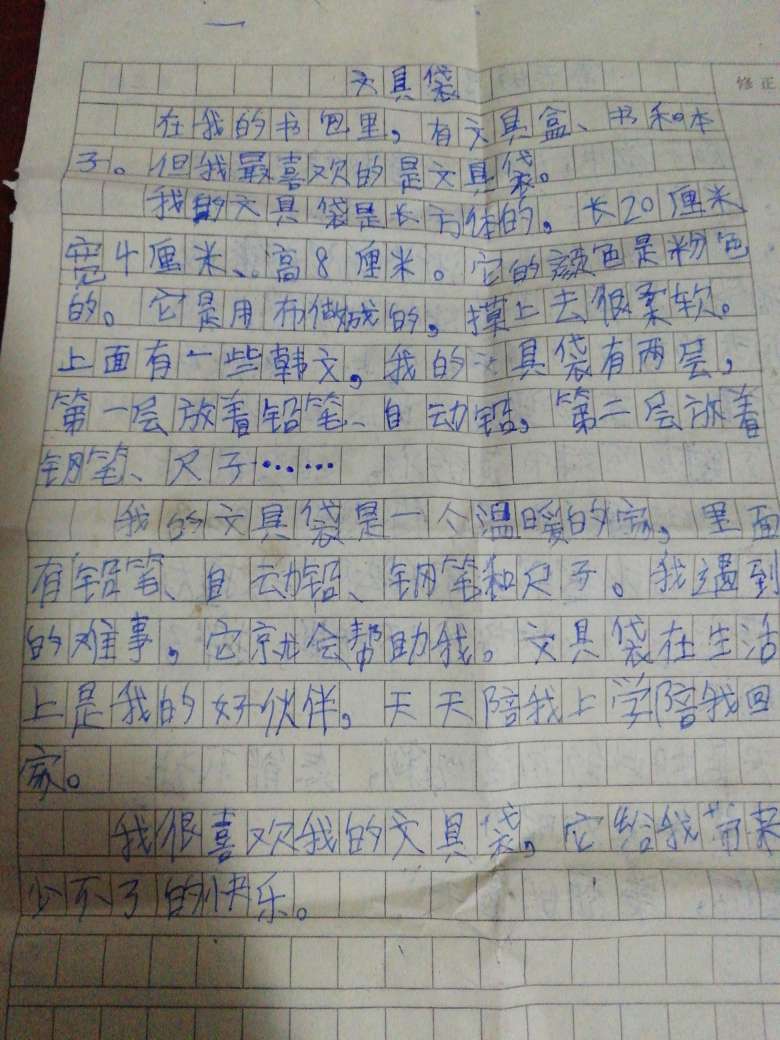 修正
文具袋
在我的书包里，有文具盒、书和本
子。但我最喜欢的是文具袋。
我的文具袋是长方体的，长20厘米
宽4厘米、高8厘米。它的颜色是粉色
的。它是用布做成的，摸上去很柔软。
上面有一些韩文，我的文具袋有两层，
第一层放着铅笔、自动铅，第二层放着
钢笔、尺子……
我的文具袋是一个温暖的家，里面
有铅笔、自动铅、钢笔和尺子。我遇到
的难事，它就会帮助我。文具袋在生活
上是我的好伙伴，天天陪我上学陪我回
家。
我很喜欢我的文具袋，它给我带来
少不了的快乐。